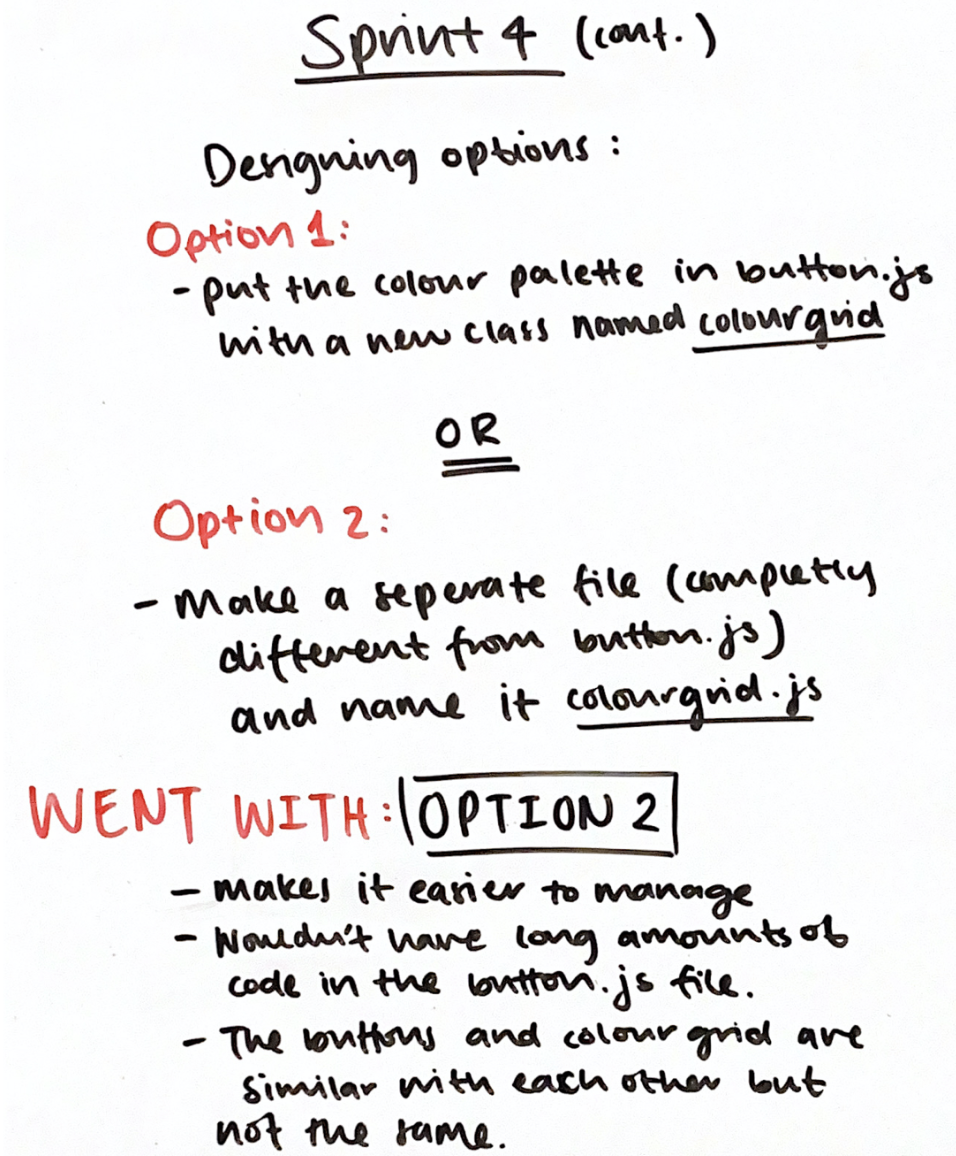 Sprint 4 (cont.)
Designing options:
Option 1:
- put the colour palette in button.js
with a new class named colourgrid
OR
Option 2:
- Make a seperate file (completly
different from button.js)
and name it colourgrid.js
WENT WITH: OPTION 2
- makes it easier to manage
- Wouldn't have long amounts of
code in the button.js file.
- The buttons and colour grid are
similar with each other but
not the same.